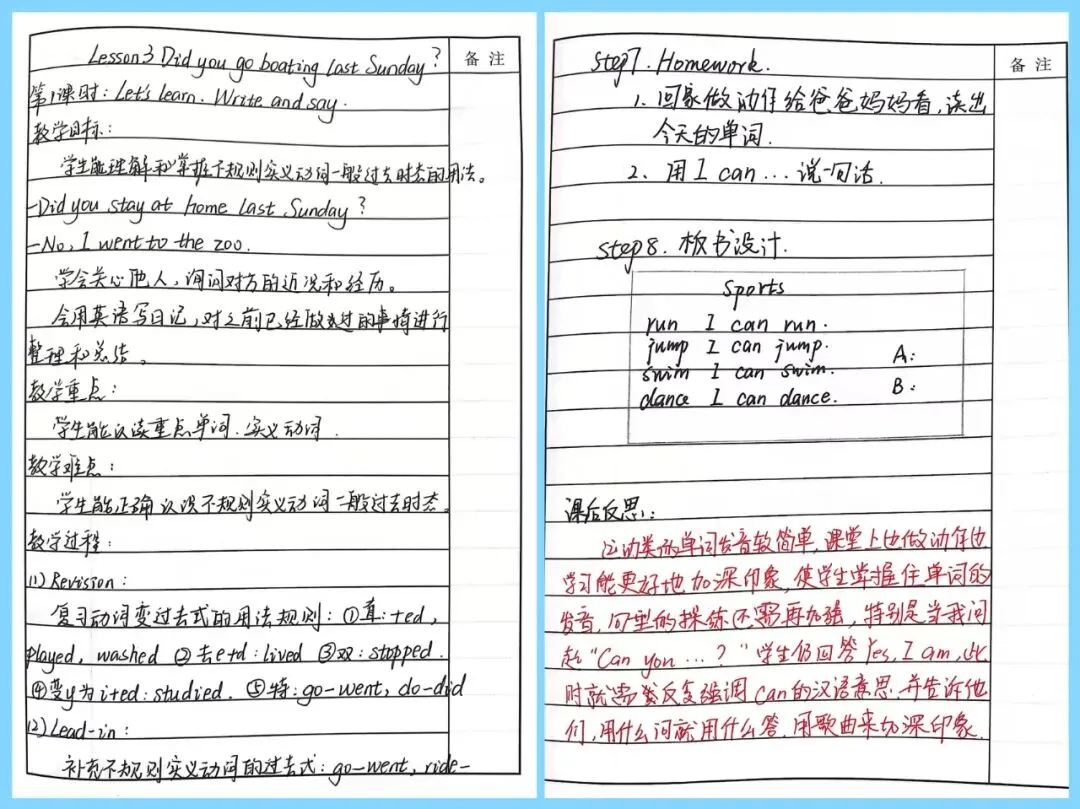 Lesson3 Did you go boating last Sunday?
备注
第1课时: Let's learn. Write and say.
教学目标:
学生能理解和掌握不规则实义动词一般过去时态的用法。
-Did you stay at home last Sunday?
-No, I went to the zoo.
学会关心他人，询问对方的近况和经历。
会用英语写日记，对之前已经做过的事情进行
整理和总结。
教学重点:
学生能认读重点单词.实义动词.
教学难点:
学生能正确认识不规则实义动词一般过去时态.
教学过程:
(1) Revision:
复习动词变过去式的用法规则: ①直: +ed,
played, washed ②去e+d: lived ③双: stopped.
④变y为i+ed: studied. ⑤特: go-went, do-did
(2) Lead-in:
补充不规则实义动词的过去式: go-went, ride-
备注
Step7. Homework.
1. 回家做动作给爸爸妈妈看,读出
今天的单词.
2. 用 I can ... 说一句话.
Step 8. 板书设计.
Sports
run I can run.
jump I can jump.
A:
swim I can swim.
B:
dance I can dance.
课后反思:
运动类的单词发音较简单,课堂上边做动作边
学习能更好地加深印象,使学生掌握住单词的
发音,句型的操练还需再加强,特别是当我问
起 "Can you ...?" 学生仍回答Yes, I am,此
时就需要反复强调can的汉语意思.并告诉他
们,用什么问就用什么答.用歌曲来加深印象.